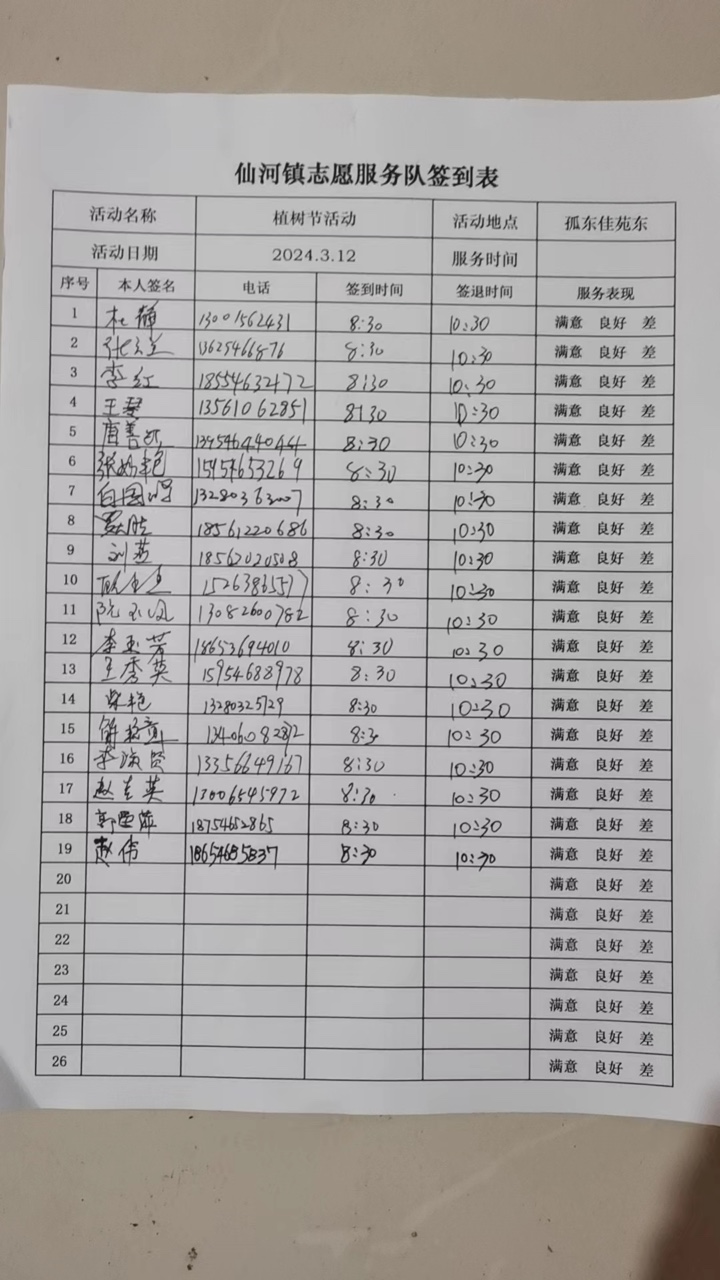 仙河镇志愿服务队签到表
活动名称 植树节活动 活动地点 孤东佳苑东
活动日期 2024.3.12 服务时间
序号 本人签名 电话 签到时间 签退时间 服务表现
1 杜静 13001562431 8:30 10:30 满意 良好 差
2 13625466876 8:30 10:30 满意 良好 差
3 李红 18554632172 8:30 10:30 满意 良好 差
4 王琴 13561062851 8:30 10:30 满意 良好 差
5 8:30 10:30 满意 良好 差
6 8:30 10:30 满意 良好 差
7 白国明 13280363007 8:30 10:30 满意 良好 差
8 18561220686 8:30 10:30 满意 良好 差
9 刘燕 18562020508 8:30 10:30 满意 良好 差
10 15263865577 8:30 10:30 满意 良好 差
11 阮玉凤 13082600782 8:30 10:30 满意 良好 差
12 李玉芳 18653694010 8:30 10:30 满意 良好 差
13 王秀英 15954688978 8:30 10:30 满意 良好 差
14 柴艳 13280325729 8:30 10:30 满意 良好 差
15 8:30 10:30 满意 良好 差
16 13356649167 8:30 10:30 满意 良好 差
17 13006545972 8:30 10:30 满意 良好 差
18 18754652865 8:30 10:30 满意 良好 差
19 赵伟 18654685837 8:30 10:30 满意 良好 差
20 满意 良好 差
21 满意 良好 差
22 满意 良好 差
23 满意 良好 差
24 满意 良好 差
25 满意 良好 差
26 满意 良好 差